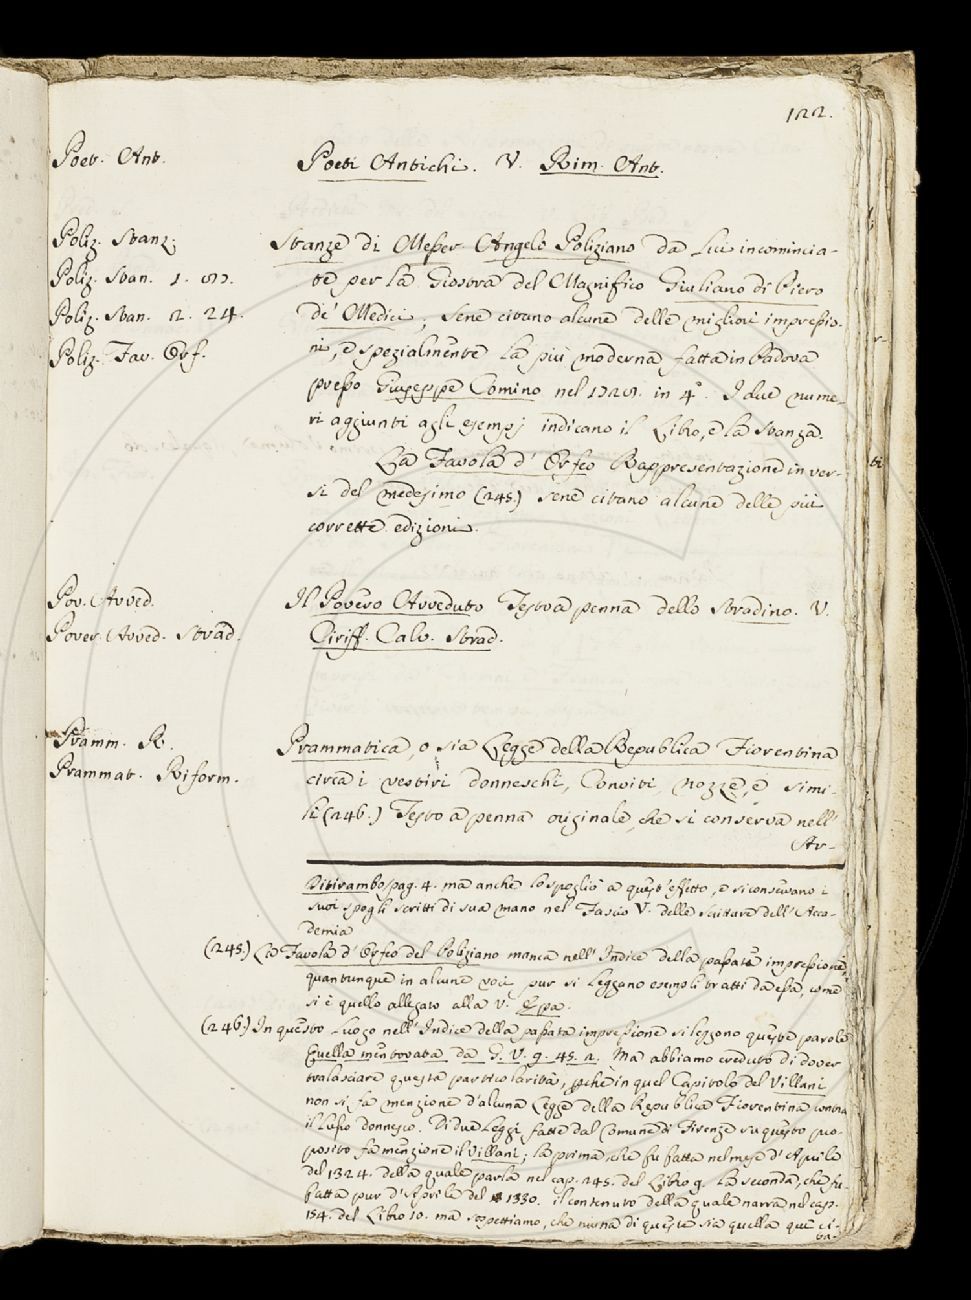 122.
Poet. Ant.
Poeti Antichi. V. Rim. Ant.
Poliz. Stanz.
Poliz. Stan. 1. 87.
Poliz. Stan. 2. 24.
Poliz. Fav. Orf.
Stanze di Messer Angelo Poliziano da Lui incomincia-
te per la Giostra del Magnifico Giuliano di Piero
de' Medici; sene citano alcune delle migliori impressio-
ni, e spezialmente la più moderna fatta in Padova
presso Giuseppe Comino nel in 4°. I due nume-
ri aggiunti agli esempj indicano il Libro, e la Stanza.
La Favola d'Orfeo Rappresentazione in ver-
si del medesimo (245.) sene citano alcune delle più
corrette edizioni.
Pov. Avved.
Pover. Avved. Strad.
Il Povero Avveduto Testo a penna dello Stradino. V.
Ciriff. Calv. Strad.
Pramm. R.
Prammat. Riform.
Prammatica, o sia Legge della Republica Fiorentina
circa i vestiri donneschi, Conviti, nozze, e simi-
li (246.) Testo a penna originale, che si conserva nell'
Ar-
Ditirambo pag. 4. ma anche lo spogliò a quest'effetto, e si conservano i
suoi spogli scritti di sua mano nel Fascio V. delle scritture dell'Acca-
demia
(245.) La Favola d'Orfeo del Poliziano manca nell'Indice della passata impressione,
quantunque in alcune voci pur si leggano esempli tratti da essa, come
si è quello allegato alla V. Epa.
(246.) In questo Luogo nell'Indice della passata impressione si leggono queste parole
Quella mentovata da G. V. 9. 45. 2. Ma abbiamo creduto di dover
tralasciare questa particolarità, pchè in quel Capitolo del Villani
non si fa menzione d'alcuna Legge della Republica Fiorentina contra
il Lusso donnesco. Di due Leggi fatte dal Comune di Firenze su questo pro-
posito fa menzione il Villani; la prima, che fu fatta nel mese d'Aprile
del 1324. della quale parla nel cap. 245. del Libro 9. La seconda, che fu
fatta pur d'Aprile del 1330. il contenuto della quale narra nel cap.
154. del Libro 10. ma sospettiamo, che niuna di queste sia quella qui ci-
ta-